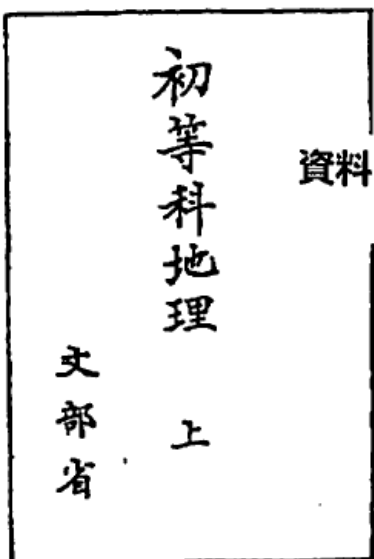 資料
初等科地理 上
文部省